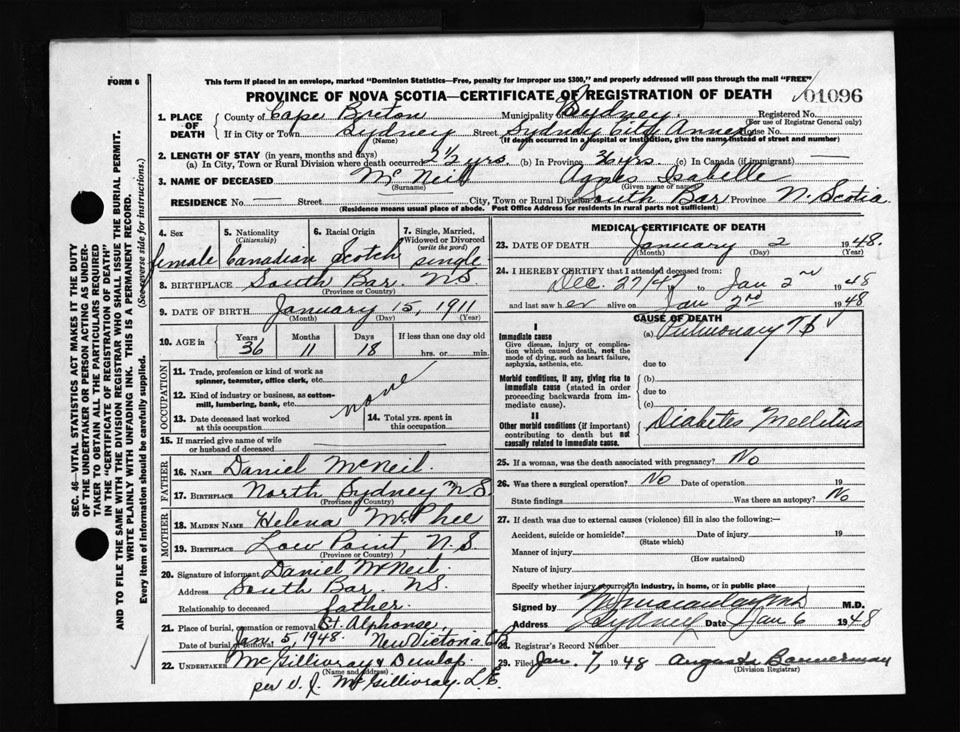 FORM 6
This form if placed in an envelope, marked "Dominion Statistics—Free, penalty for improper use $300," and properly addressed will pass through the mail "FREE"
PROVINCE OF NOVA SCOTIA—CERTIFICATE OF REGISTRATION OF DEATH
01096
1. PLACE OF DEATH
County of Cape Breton Municipality Sydney Registered No.
(For use of Registrar General only)
If in City or Town Sydney Street Sydney City Annex House No.
(Name) (If death occurred in a hospital or institution, give the name instead of street and number)
2. LENGTH OF STAY (in years, months and days)
(a) In City, Town or Rural Division where death occurred 2 1/2 yrs. (b) In Province 36 yrs. (c) In Canada (if immigrant) —
3. NAME OF DECEASED McNeil Agnes Isabelle
(Surname) (Given name or names)
RESIDENCE No — Street City, Town or Rural Division South Bar Province N. Scotia
(Residence means usual place of abode. Post Office Address for residents in rural parts not sufficient)
4. Sex
female
5. Nationality
(Citizenship)
Canadian
6. Racial Origin
Scotch
7. Single, Married, Widowed or Divorced
(write the word)
single
8. BIRTHPLACE South Bar. N.S.
(Province or Country)
9. DATE OF BIRTH January 15, 1911
(Month) (Day) (Year)
10. AGE in
Years Months Days If less than one day old
36 11 18 hrs. or min.
OCCUPATION
11. Trade, profession or kind of work as
spinner, teamster, office clerk, etc.
12. Kind of industry or business, as cotton-
mill, lumbering, bank, etc.
none
13. Date deceased last worked
at this occupation
14. Total yrs. spent in
this occupation
15. If married give name of wife
or husband of deceased
FATHER
16. NAME Daniel McNeil.
17. BIRTHPLACE North Sydney N.S.
(Province or Country)
MOTHER
18. MAIDEN NAME Helena McPhee
19. BIRTHPLACE Low Point, N.S.
(Province or Country)
20. Signature of informant Daniel McNeil.
Address South Bar. N.S.
Relationship to deceased father.
21. Place of burial, cremation or removal St. Alphonse,
Date of burial Jan. 5, 1948. New Victoria CB
22. UNDERTAKER McGillivray & Dunlop.
(Name and address)
per V. J. McGillivray. L.E.
MEDICAL CERTIFICATE OF DEATH
23. DATE OF DEATH January 2 1948.
(Month) (Day) (Year)
24. I HEREBY CERTIFY that I attended deceased from:
Dec. 27/47 to Jan 2nd 1948
and last saw her alive on Jan 2nd 1948
CAUSE OF DEATH
I
Immediate cause
Give disease, injury or complica-
tion which caused death, not the
mode of dying, such as heart failure,
asphyxia, asthenia, etc.
(a) Pulmonary TB
due to
Morbid conditions, if any, giving rise to
immediate cause (stated in order
proceeding backwards from im-
mediate cause).
(b)
due to
(c)
II
Other morbid conditions (if important)
contributing to death but not
causally related to immediate cause.
Diabetes Mellitus
25. If a woman, was the death associated with pregnancy? No
26. Was there a surgical operation? No Date of operation 19
State findings Was there an autopsy? No
27. If death was due to external causes (violence) fill in also the following:—
Accident, suicide or homicide? Date of injury 19
(State which)
Manner of injury
(How sustained)
Nature of injury
Specify whether injury occurred in industry, in home, or in public place
Signed by M.D.
Address Sydney Date Jan 6 1948
28. Registrar's Record Number
29. Filed Jan. 7, 1948 Augusta Bannerman
(Division Registrar)
SEC. 46—VITAL STATISTICS ACT MAKES IT THE DUTY
OF THE UNDERTAKER OR PERSON ACTING AS UNDER-
TAKER TO OBTAIN ALL THE PARTICULARS REQUIRED
IN THE "CERTIFICATE OF REGISTRATION OF DEATH"
AND TO FILE THE SAME WITH THE DIVISION REGISTRAR WHO SHALL ISSUE THE BURIAL PERMIT.
WRITE PLAINLY WITH UNFADING INK. THIS IS A PERMANENT RECORD.
Every item of information should be carefully supplied. (See reverse side for instructions.)